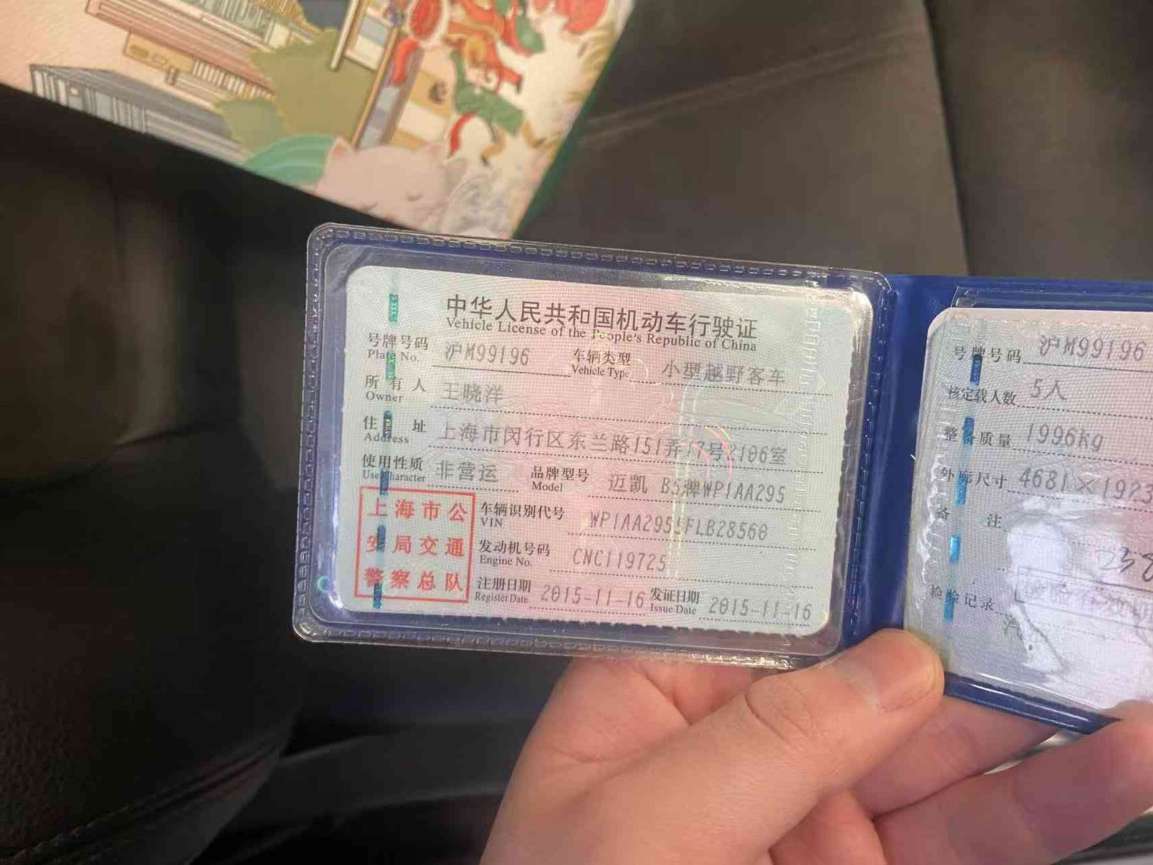 中华人民共和国机动车行驶证
Vehicle License of the People's Republic of China
号牌号码 沪M99196 车辆类型 小型越野客车
Plate No. Vehicle Type
所有人 王晓洋
Owner
住址 上海市闵行区东兰路151弄17号2106室
Address
使用性质 非营运 品牌型号 迈凯 BS牌WP1AA295
Use Character Model
上海市公
安局交通
警察总队
车辆识别代号 WP1AA2955FLB28560
VIN
发动机号码 CNC119725
Engine No.
注册日期 2015-11-16 发证日期 2015-11-16
Register Date Issue Date
号牌号码 沪M99196
核定载人数 5人
整备质量 1996kg
外廓尺寸 4681×1923
备注
检验记录